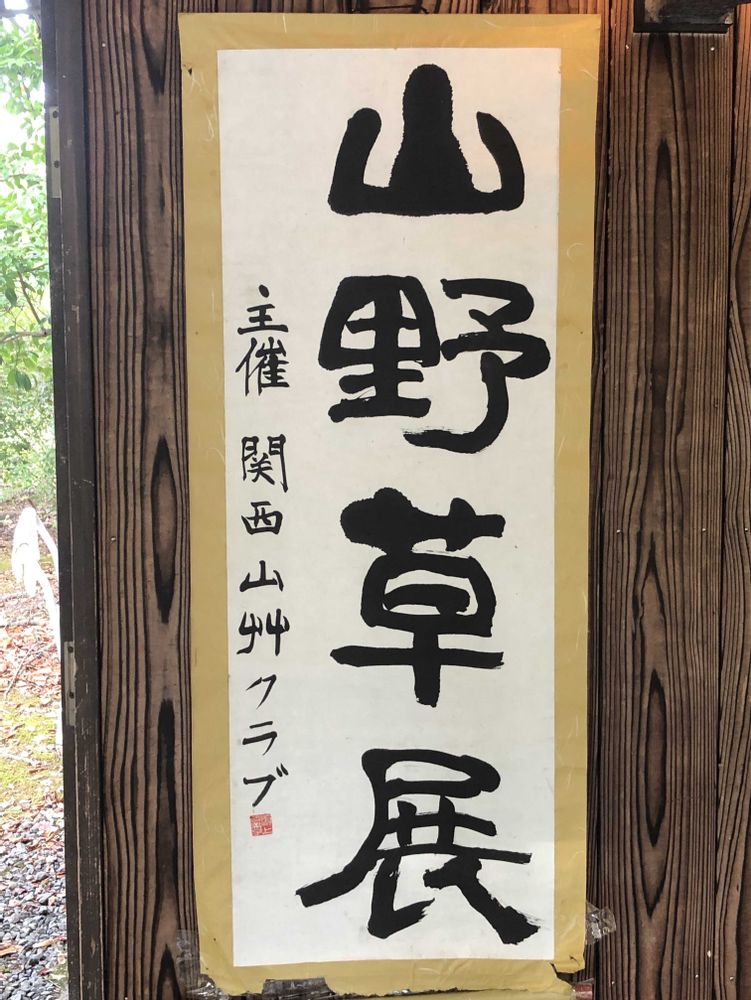 山野草展
主催 関西山艸クラブ